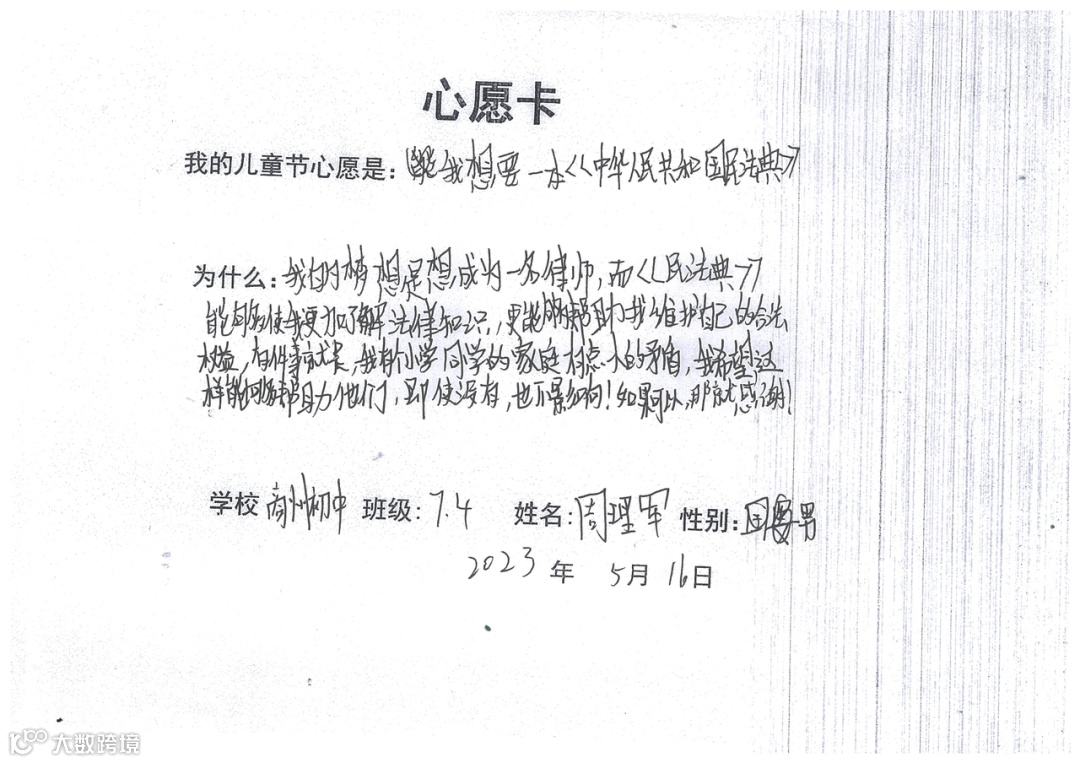 心愿卡
我的儿童节心愿是：我想要一本《中华人民共和国民法典》
为什么：我的梦想是想成为一名律师，而《民法典》
能够使我更加了解法律知识，更能够帮助我维护自己的合法
权益，有件事就是，我有小学同学的家庭有点小的矛盾，我希望这
样能够帮助他们，即使没有，也不影响！如果可以，那就感谢！
学校 商州初中 班级：7.4 姓名：周理军 性别：男
2023 年 5月 16日
大数跨境